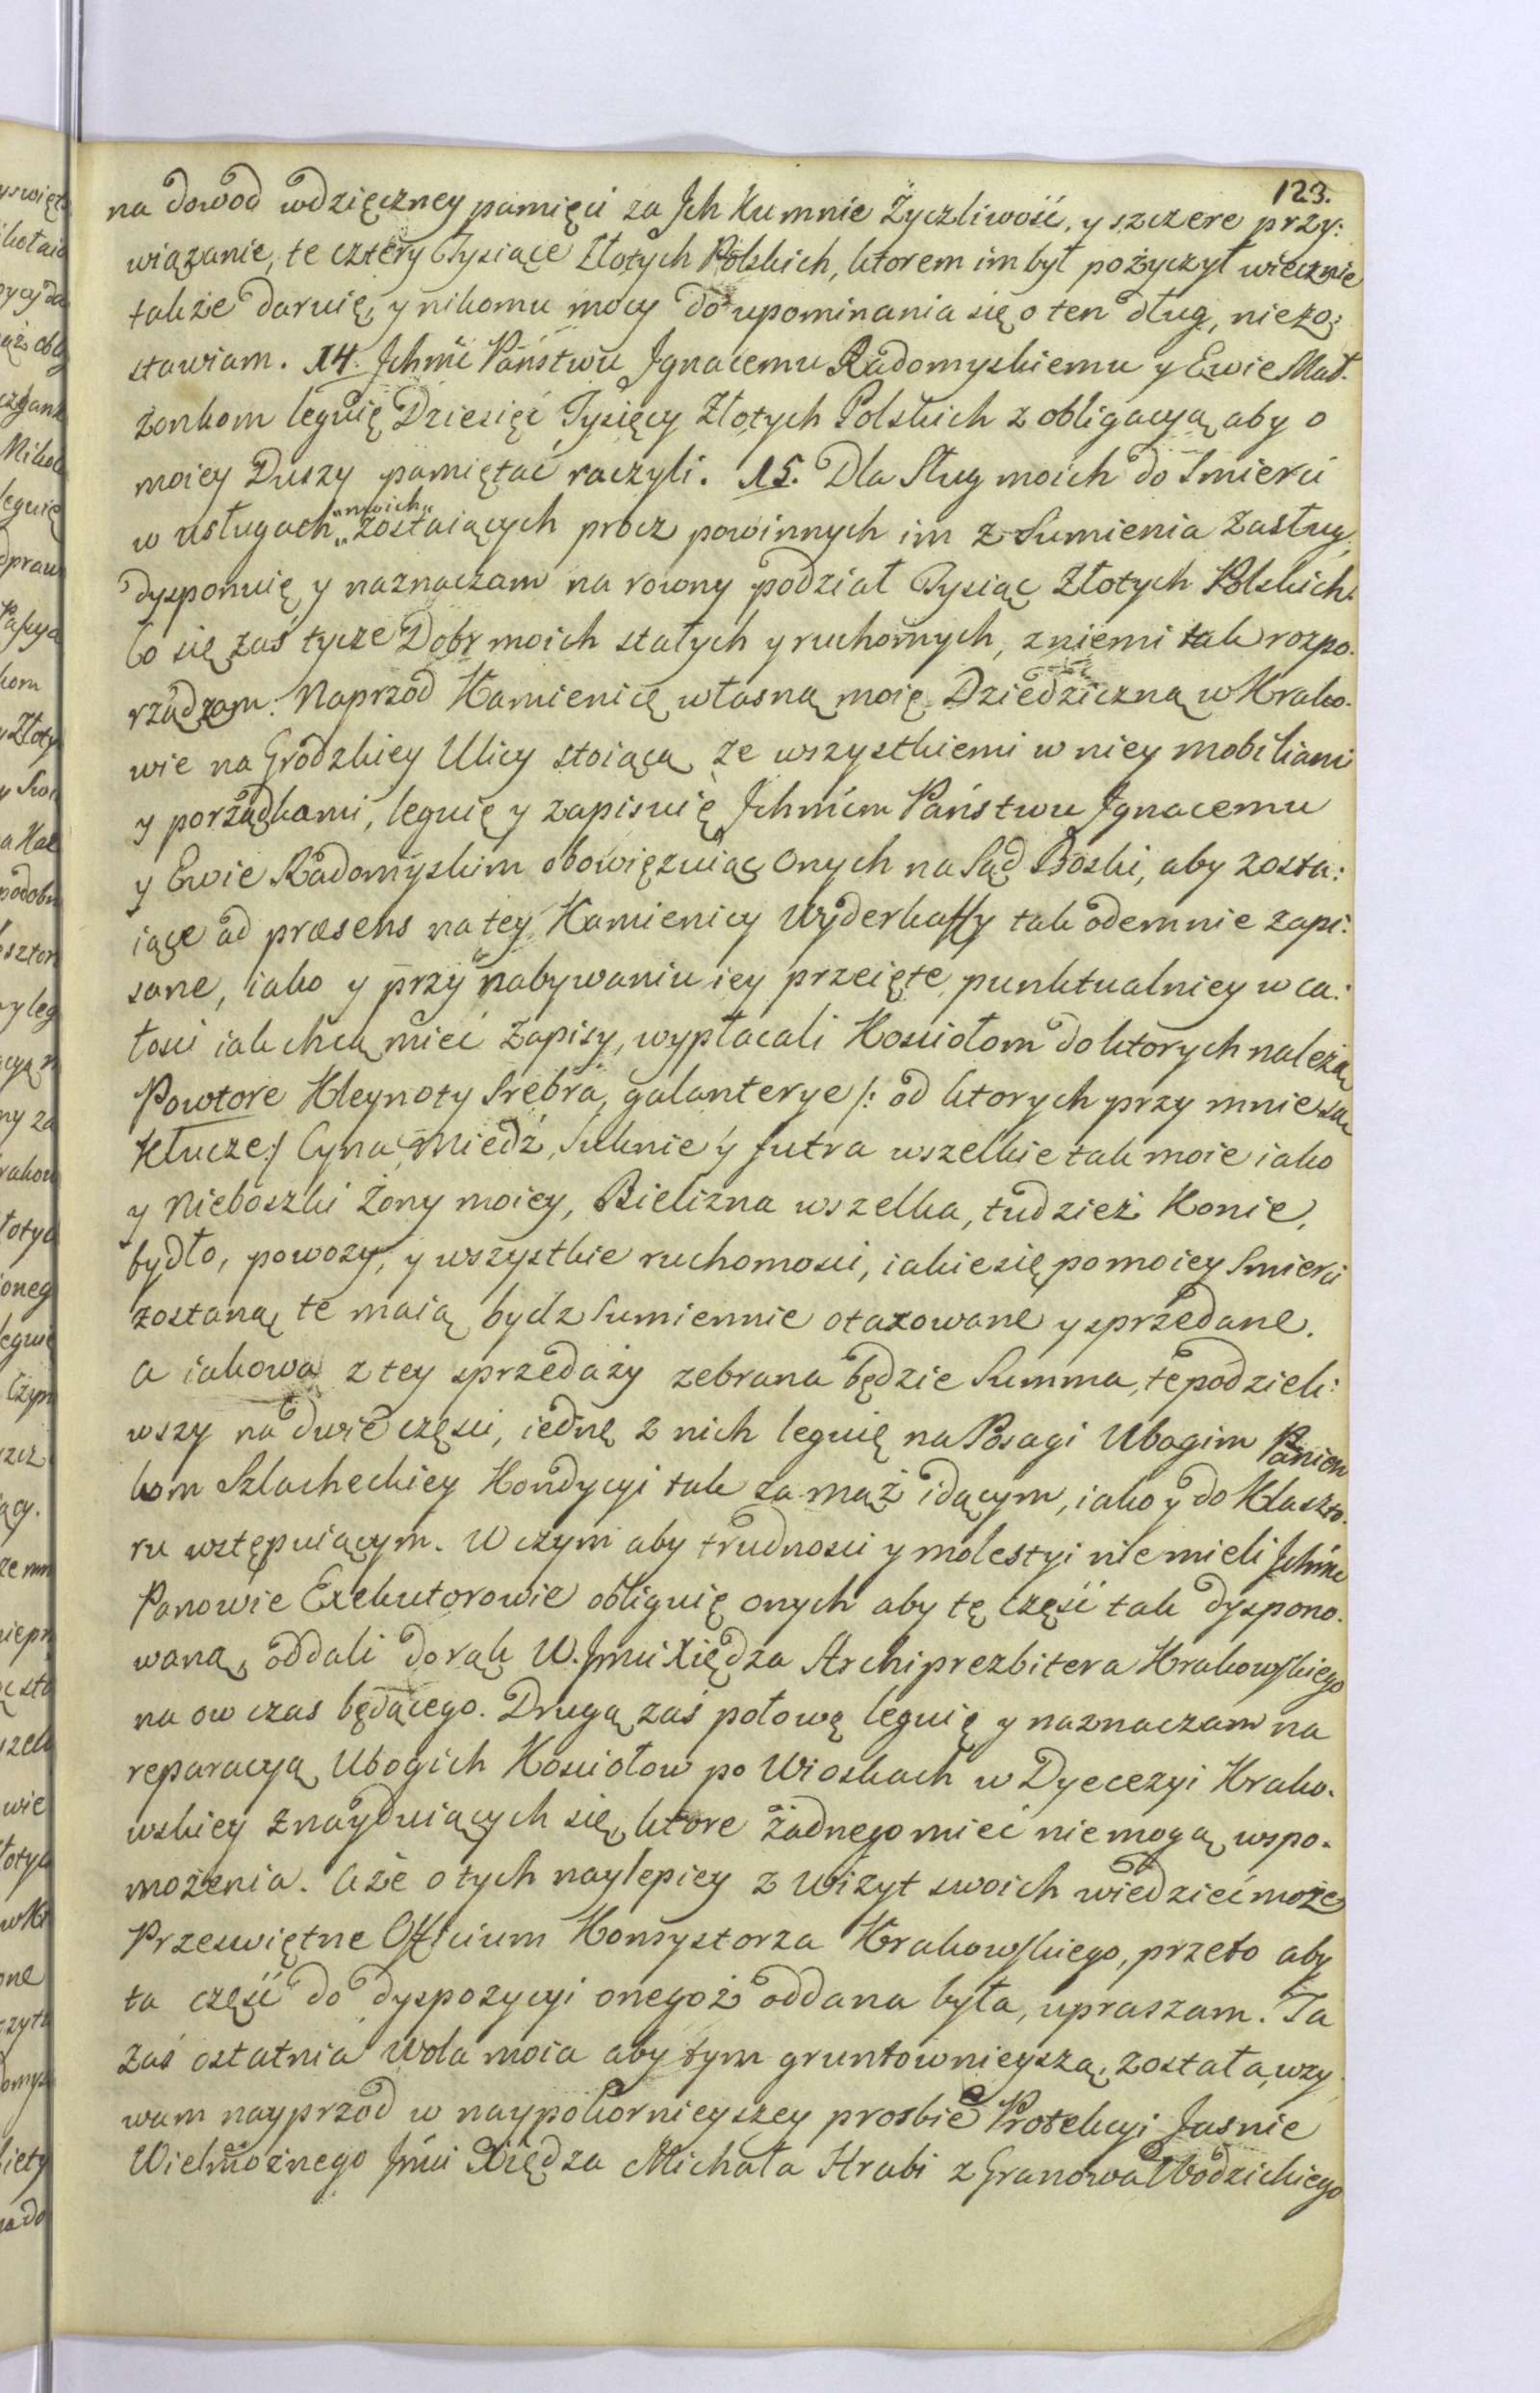 123.
na dowod wdzięczney pamięci za Jch Kumnie Życzliwość, y szczere przy:
wiązanie, te cztery Tysiące Złotych Polskich, ktorem im był pożyczył wiecznie
także daruię, y nikomu mocy do upominania się o ten dług, niezo:
stawiam. 14. Jchmć Państwu Jgnacemu Radomyskiemu y Ewie Mał-
żonkom leguię Dziesięć Tysięcy Złotych Polskich z obligacyą aby o
moiey Duszy pamiętać raczyli. 15. Dla Sług moich do Smierci
w usługach „moich„ zostaiących procz powinnych im z Sumienia Zasług,
dysponuię y naznaczam na rowny podział Tysiąc Złotych Polskich.
Co się zaś tycze Dobr moich stałych y ruchomych, zniemi tak rozpo-
rządzam: Naprzod Kamienicę własną moię Dziedziczną w Krako-
wie na Grodzkiey Ulicy stoiącą ze wszystkiemi w niey mobiliami
y porządkami, leguię y zapisuię Jchmćm Państwu Jgnacemu
y Ewie Radomyskim obowięzuiąc Onych na Sąd Boski, aby zosta:
iące ad præsens na tey Kamienicy Wyderkaffy tak odemnie zapi:
sane, iako y przy nabywaniu iey przeięte punktualniey w ca:
łosci iak chcą mieć Zapisy, wypłacali Kosciołom do ktorych należą
Powtore Kleynoty Srebra, galanterye /: od ktorych przy mnie są
Klucze:/ Cyna, Miedź, Suknie y futra wszelkie tak moie iako
y Nieboszki Żony moiey, Bielizna wszelka, tudzież Konie,
bydło, powozy, y wszystkie ruchomosci, iakie się po moiey Smierci
zostaną te maią bydz Sumiennie otaxowane y sprzedane.
A iakowa z tey sprzedaży zebrana będzie Summa, tę podzieli:
wszy na dwie częsci, iednę z nich leguię na Posagi Ubogim Panien
kom Szlacheckiey Kondycyi tak za mąż idącym, iako y do Klaszto-
ru wstępuiącym. W czym aby trudnosci y molestyi nie mieli Jchmć
Panowie Exekutorowie obliguię onych aby tę część tak dyspono-
waną, oddali do rąk W. Jmci Xiędza Archiprezbitera Krakowskiego
na ow czas będącego. Drugą zaś połowę leguię y naznaczam na
reparacyą Ubogich Kosciołow po Wioskach w Dyecezyi Krako-
wskiey znayduiących się, ktore żadnego mieć nie mogą wspo-
możenia. A że o tych naylepiey z Wizyt swoich wiedzieć może
Przeswiętne Officium Konsystorza Krakowskiego, przeto aby
ta część do dyspozycyi onegoż oddana była, upraszam. Ta
zaś ostatnia Wola moia aby tym gruntownieyszą została, wzy
wam nayprzod w naypokornieyszey prosbie Protekcyi Jasnie
Wielmożnego Jmci Xiędza Michała Hrabi z Granowa Wodzickiego